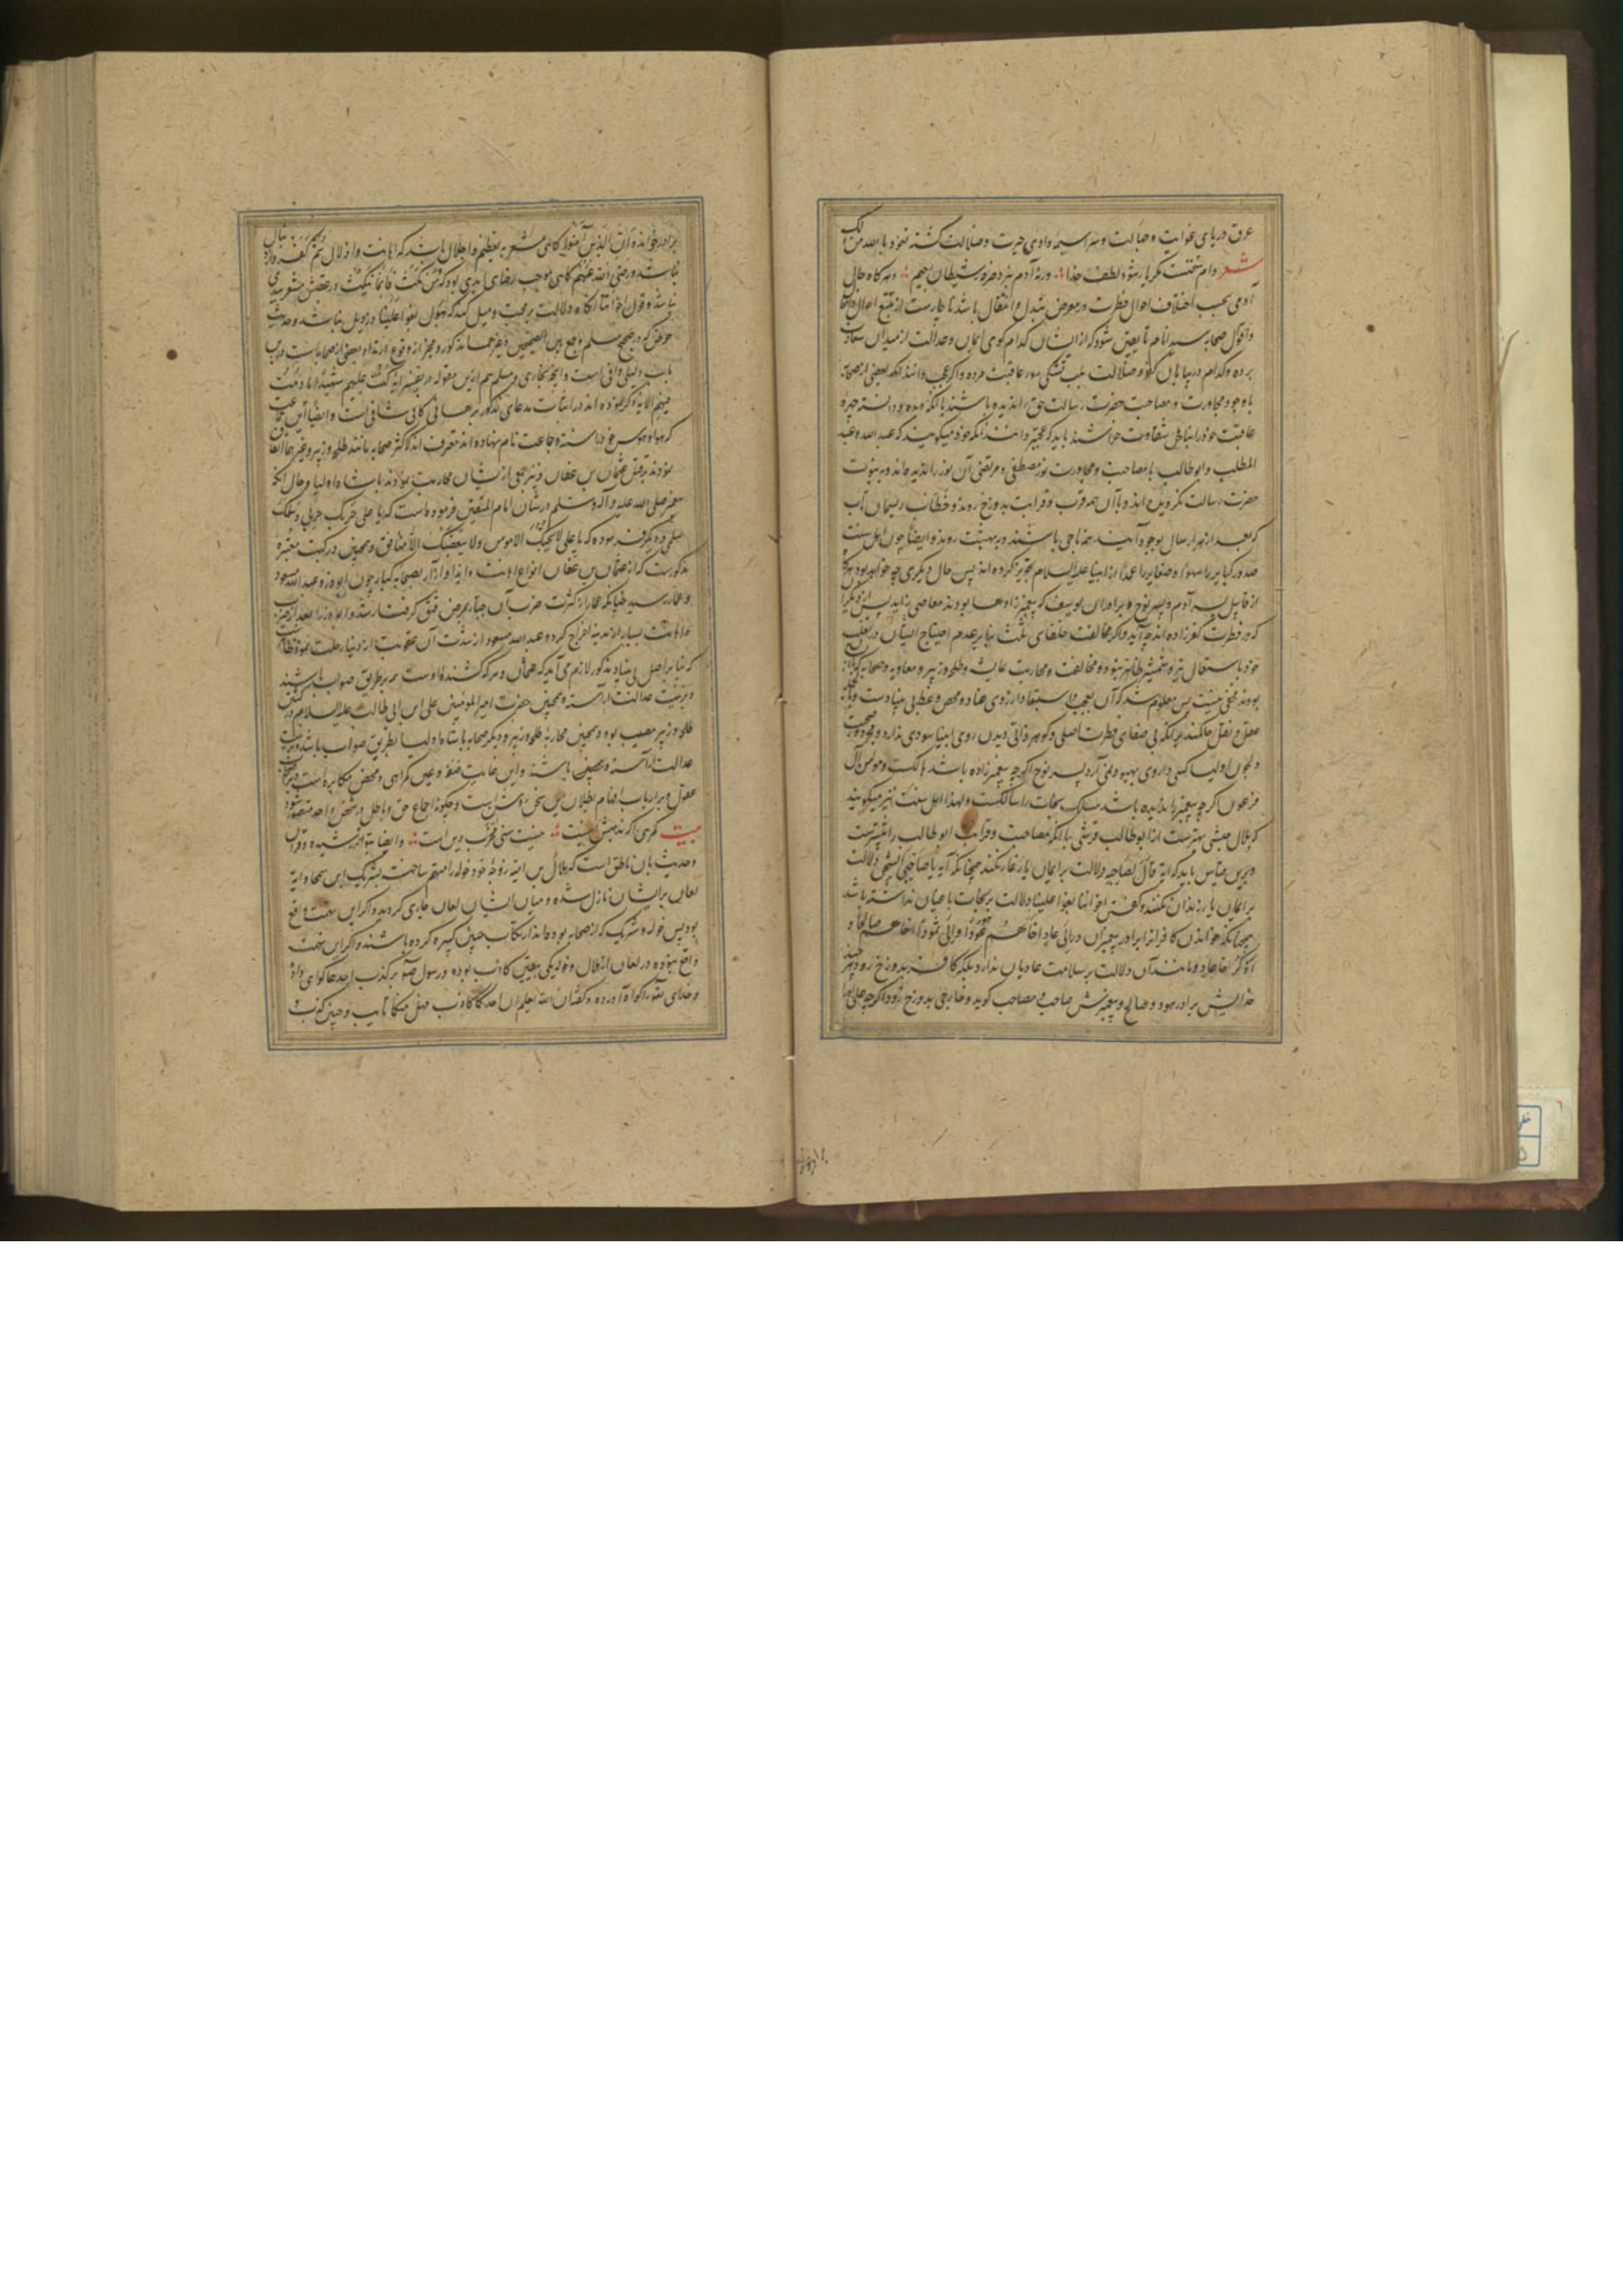 غرق دریای غوایت و جهالت و سراسیمه وادی حیرت و ضلالت گشته نعوذ بالله من ذلک
شعر دام سختست مگر یار شود لطف خدا ورنه آدم نبرد صرفه ز شیطان رجیم و هرگاه حال
آدمی بحسب اختلاف احوال فطرت در معرض تبدل و انتقال باشد ناچارست از تتبع احوال
و اقوال صحابه سید انام تا یقین شود که از ایشان کدام گوی ایمان و عدالت از میدان سعادت
برده و کدام در بیابان کفر و ضلالت بلب تشنگی سوء عاقبت مرده و اگر عجب دانند آنکه بعضی از صحابه
با وجود مجاورت و مصاحبت حضرت رسالت حق را ندیده باشند یا آنکه دیده و دانسته چهره
عاقبت خود را بناخن شقاوت خراشند باید که عجبتر دانند آنکه خود میگویند که عبد الله و عبد
المطلب و ابو طالب با مصاحبت و مجاورت نور مصطفی و مرتضی آن نور را ندیده‌اند و به نبوت
حضرت رسالت نگرویده‌اند و با آن همه قرب و قرابت بدوزخ روند و خطائیان ریسمان تاب
که بعد از هزار سال بوجود آمدند همه ناجی باشند و ببهشت روند و ایضا چون اهل سنت
صدور کبایر را سهوا و صغایر را عمدا از انبیا علیه السلام تجویز کرده‌اند پس حال دیگری چه خواهد بود هرگاه
از قابیل پسر آدم و پسر نوح و برادران یوسف که پیغمبر زاده‌ها بودند معاصی زاید پس از دیگران
که در فطرت کفر زاده‌اند چه آید و اگر مخالفت خلفای ثلث بنابر عدم احتیاج ایشان در تغلب
خود باستعمال تیر و شمشیر ظاهر نبود و مخالفت و محاربت عایشه و طلحه و زبیر و معاویه و صحابه که با ایشان
بودند مخفی نیست پس معلوم شد که آن تعجب و استبعاد از روی عناد و محض و غطی بی بنیادست
عقل و نقل حاکمند بر آنکه بی صفای فطرت اصلی و گوهر ذاتی دیدن روی انبیا سودی ندارد و صحبت
و چون اولیا کسی داروی بهبود دلی نیارد پسر نوح اگر چه پیغمبر زاده باشد هالکست و مومن آل
فرعون اگر چه پیغمبر را ندیده باشد مسالک نجات را سالکست و لهذا اهل سنت نیز میگویند
که بلال حبشی بهترست از ابو طالب قرشی با آنکه مصاحبت و قرابت ابو طالب را بیشترست
و برین قیاس باید که آیه قال لصاحبه دلالت بر ایمان یار غار نکند چنانکه آیه یا صاحبی السجن دلالت
بر ایمان یار زندان نکند و گفتن اخواننا بغوا علینا دلالت بر نجات باغیان نداشته باشد
چنانکه خواندن کافران را برادر پیغمبران در الی عاد اخاهم هودا و الی ثمود اخاهم صالحا و
اذکر اخا عاد و مانند آن دلالت بر سلامت عادیان ندارد بلکه کافر بدوزخ رود هر چند
خدایش برادر هود و صالح و پیغمبرش صاحب و مصاحب گوید و خارجی بدوزخ رود اگر چه علی او را
برادر خوانده ان الذین آمنوا گاهی مشعر بتعظیم و اجلال باشد که اهانت و اذلال ثم کفروا
نباشد و رضی الله عنهم گاهی موجب رضای ابدی بود که فمن نکث فانما ینکث در عقبش مشعر بدی
نباشد و قول اخواننا آنگاه دلالت بر محبت و میل کند که قول بغوا علینا در ذیل نباشد و حدیث
حوض که در صحیح مسلم و جمع بین الصحیحین و غیرهما مذکور و مخبر از وقوع ارتداد بعضی از صحابه است درین
باب دلیلی وافی است و آنچه بخاری و مسلم هم ازین مقوله در تفسیر آیه کنت علیهم شهیدا ما دمت
فیهم الایه ذکر نموده‌اند در اثبات مدعای مذکور برهانی کافی شافی است و ایضا این جماعت
که هوا و هوس خود را سنة و جماعت نام نهاده‌اند معترف‌اند که اکثر صحابه مانند طلحه و زبیر و غیرهما اتفاق
نمودند بر قتل عثمان بن عفان و نیز جمعی ازیشان محاربت نمودند با شاه اولیا و حال آنکه
پیغمبر صلی الله علیه و آله و سلم در شان امام المتقین فرموده است که یا علی حربک حربی و سلمک
سلمی و دیگر فرموده که یا علی لا یحبک الا مومن و لا یبغضک الا منافق و همچنین در کتب معتبره
مذکورست که از عثمان بن عفان انواع اهانت و ایذا و آزار بصحابه کبار چون ابوذر و عبد الله مسعود
و عمار رسید چنانکه عمار از کثرت ضرب آن جبار بمرض فتق گرفتار شد و ابوذر را بعد از ضرب
و اهانت بسیار از مدینه اخراج کرد و عبد الله مسعود از شدت آن عقوبت از دنیا رحلت نمود
که بنا بر اصل بی بنیاد مذکور لازم می آید که عثمان و هر که کشنده اوست همه بر طریق صواب باشند
و بزینت عدالت آراسته و همچنین حضرت امیر المومنین علی ابن ابی طالب علیه السلام در کشتن
طلحه و زبیر مصیب بود و همچنین محاربه طلحه و زبیر و دیگر صحابه با شاه اولیا بطریق صواب باشد و بزینت
عدالت آراسته و مصیب باشند و این غایت ضلال و عین گمراهی و محض مکابره است
عقول و بر ارباب افهام بطلان این سخن روشن است و چگونه اجتماع حق و باطل در شخص واحد متصور شود
بیت
و حدیث بان ناطق است که هلال بن امیه زوجه خود خوله را متهم ساخت بشریک ابن سمحا و آیه
لعان بر ایشان نازل شده و میان ایشان لعان جاری گردید و اگر این سخن واقع
بود پس خوله و شریک که از صحابه بوده‌اند ارتکاب چنین کبیره کرده باشند و اگر این سخن
واقع نبوده در لعان از هلال و خوله یکی بیقین کاذب بوده و رسول هم بر کذب احدهما گواهی داده
و خدای تعالی را گواه آورده و گفته ان الله یعلم ان احدکما کاذب فهل منکما تایب و چنین کذب و